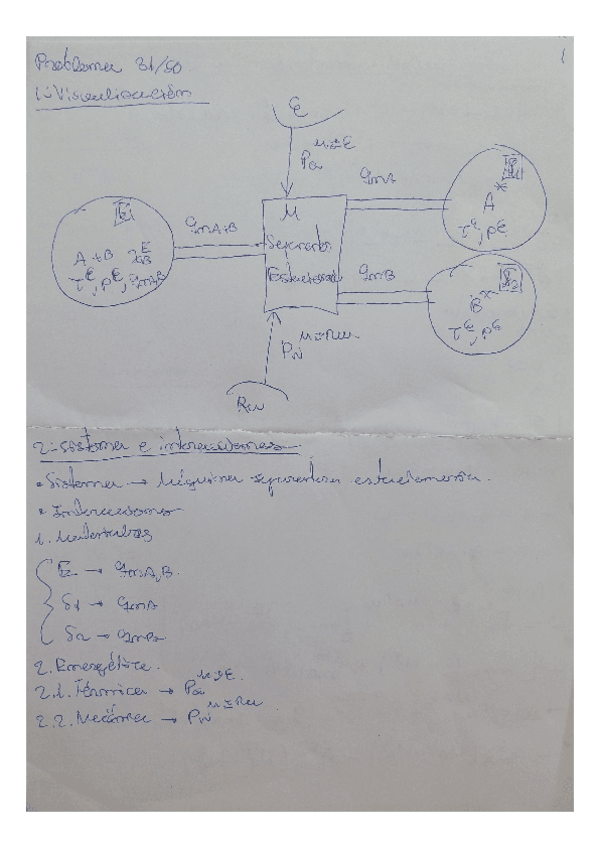 Problema 31/50
1
1:Visualización
E
Pa M⇄E
qmA
E1
S1
A*
T^E, P^E
qmA+B
M
Separador
Estacionario
A+B
T^E, P^E, qmAB
qmB
S2
B*
T^E, P^E
PW M⇄RW
RW
2-Sistema e interacciones
• Sistema → Máquina separadora estacionaria.
• Interacciones
1. Materiales
E → qmA,B.
S1 → qmA
S2 → qmB
2. Energética.
2.1. Térmica → Pa M⇄E.
2.2. Mecánica → PW M⇄RW